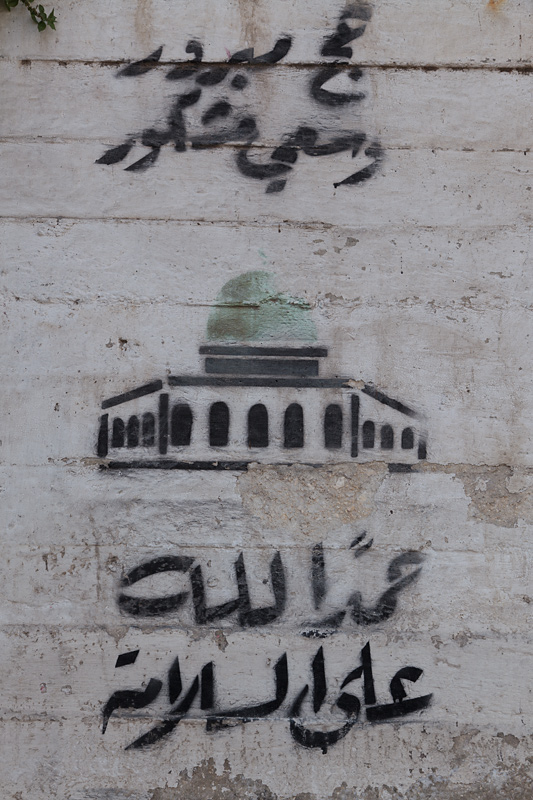 حج مبرور
وسعي مشكور
حمداً لله
على السلامة